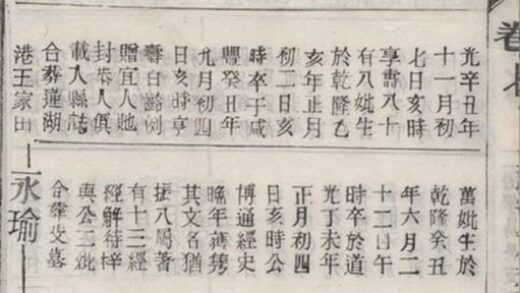 卷
光辛丑年
十一月初
七日亥時
享壽八十
有八妣生
於乾隆乙
亥年正月
初二日亥
時卒于咸
豐癸丑年
九月初四
日亥時享
壽百齡例
贈宜人貤
封恭人俱
載入縣誌
合葬蓮湖
港王家田
萬妣生於
乾隆癸丑
年六月二
十二日午
時卒於道
光丁未年
正月初四
日亥時公
博通經史
晚年薄
其文名猶
振八屬著
有十三經
經解待梓
與公二妣
合葬父墓
永瑜